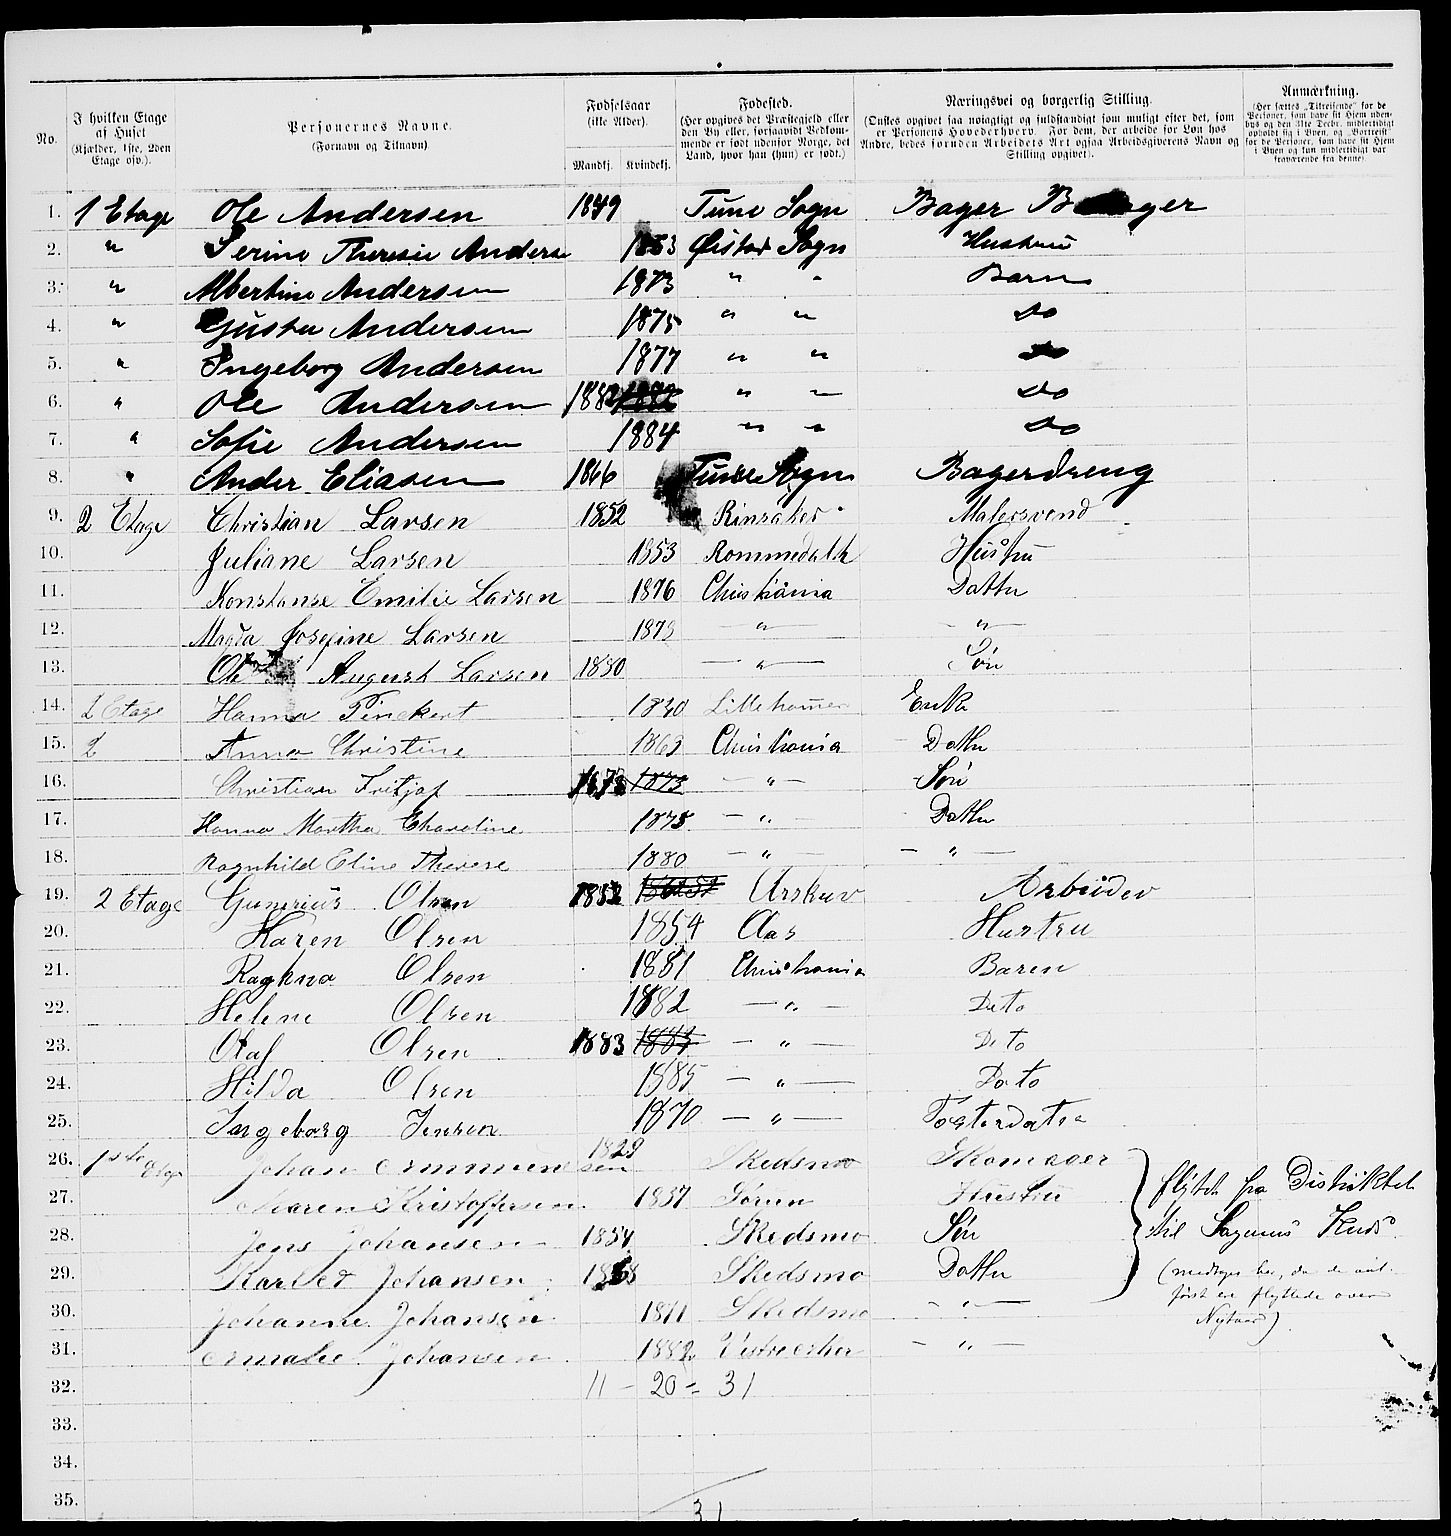 No.
I hvilken Etage af Huset (Kjælder, 1ste, 2den Etage osv.).
Personernes Navne. (Fornavn og Tilnavn)
Fødselsaar (ikke Alder).
Mandkj. Kvindekj.
Fødested. (Her opgives det Præstegjeld eller den By eller, forsaavidt Vedkommende er født udenfor Norge, det Land, hvor han (hun) er født.)
Næringsvei og borgerlig Stilling. (Ønskes opgivet saa nøiagtigt og fuldstændigt som muligt efter det, som er Personens Hovederhverv. For dem, der arbeide for Løn hos Andre, bedes foruden Arbeidets Art ogsaa Arbeidsgiverens Navn og Stilling opgivet).
Anmærkning. (Her sættes „Tilreisende" for de Personer, som have sit Hjem udenbys og den 31te Decbr. midlertidigt opholdt sig i Byen, og „Bortreist" for de Personer, som have sit Hjem i Byen og kun midlertidigt var fraværende fra denne)
1. 1 Etage Ole Andersen 1849 Tune Sogn Bager
2. " Serine Theresie Anderse 1853 Sogn Hustru
3. " Albertine Andersen 1873 " " Barn
4. " Gusta Andersen 1875 " " Do
5. " Ingeborg Andersen 1877 " " Do
6. " Ole Andersen 1882 1882 " " Do
7. " Sofie Andersen 1884 " " Do
8. " Ander Eliasen 1866 Tune Sogn Bagerdreng
9. 2 Etage Christian Larsen 1852 Rinsaker Malersvend
10. Juliane Larsen 1853 Rommedalk Hustru
11. Konstanse Emilie Larsen 1876 Christiania Datter
12. Magda Josefine Larsen 1879 — " — — " —
13. Ole August Larsen 1880 — " — Søn
14. 2 Etage Hanna Pinckert 1840 Lillehamer Enke
15. 2 Anna Christine 1863 Christiania Datter
16. Christian Fritjof 1873 1873 — " — Søn
17. Hanna Martha Charoline 1875 — " — Datter
18. Ragnhild Eline Therese 1880 — " — — " —
19. 2 Etage Gunerius Olsen 1852 Urskuv Arbeider
20. Karen Olsen 1854 Aas Hustru
21. Raghna Olsen 1881 Christiania Baren
22. Helene Olsen 1882 — " — Deto
23. Olaf Olsen 1883 1883 — " — Deto
24. Hilda Olsen 1885 — " — Deto
25. Ingeborg Jensen 1870 — " — Fosterdatter
26. 1ste Etage Johan Ammundsen 1829 Skedsmo Skomager
27. Maren Kristoffersen 1837 Sørum Hustru
28. Jens Johansen 1854 Skedsmo Søn
29. Johansen 1868 Skedsmo Datter
30. Johanne Johansen 1871 Skedsmo — " —
31. Amalie Johansen 1882 — " —
flyttet fra Distriktet
til
(medtages her, da de
først er flyttede over
Nytaar).
32. 11 – 20 = 31
33.
34.
35.
31